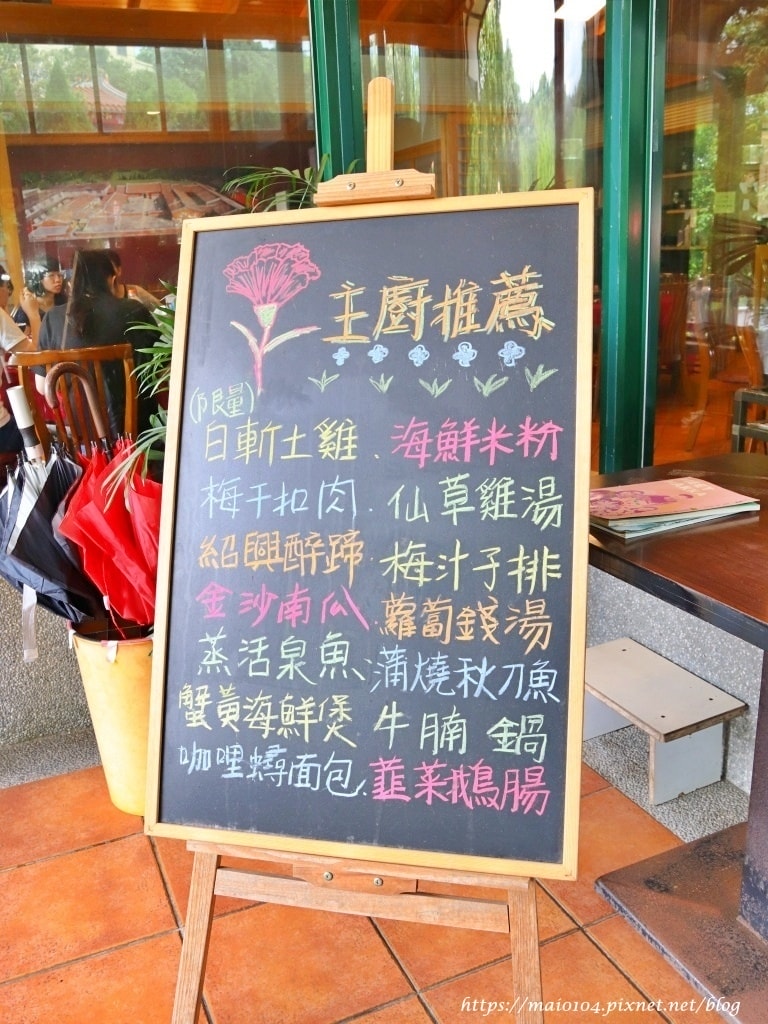 主廚推薦
(限量)
白斬土雞.海鮮米粉
梅干扣肉.仙草雞湯
紹興醉蹄.梅汁子排
金沙南瓜.蘿蔔錢湯
蒸活泉魚.蒲燒秋刀魚
蟹黃海鮮煲 牛腩鍋
咖哩蟳面包.韮菜鵝腸
https://maio104.pixnet.net/blog